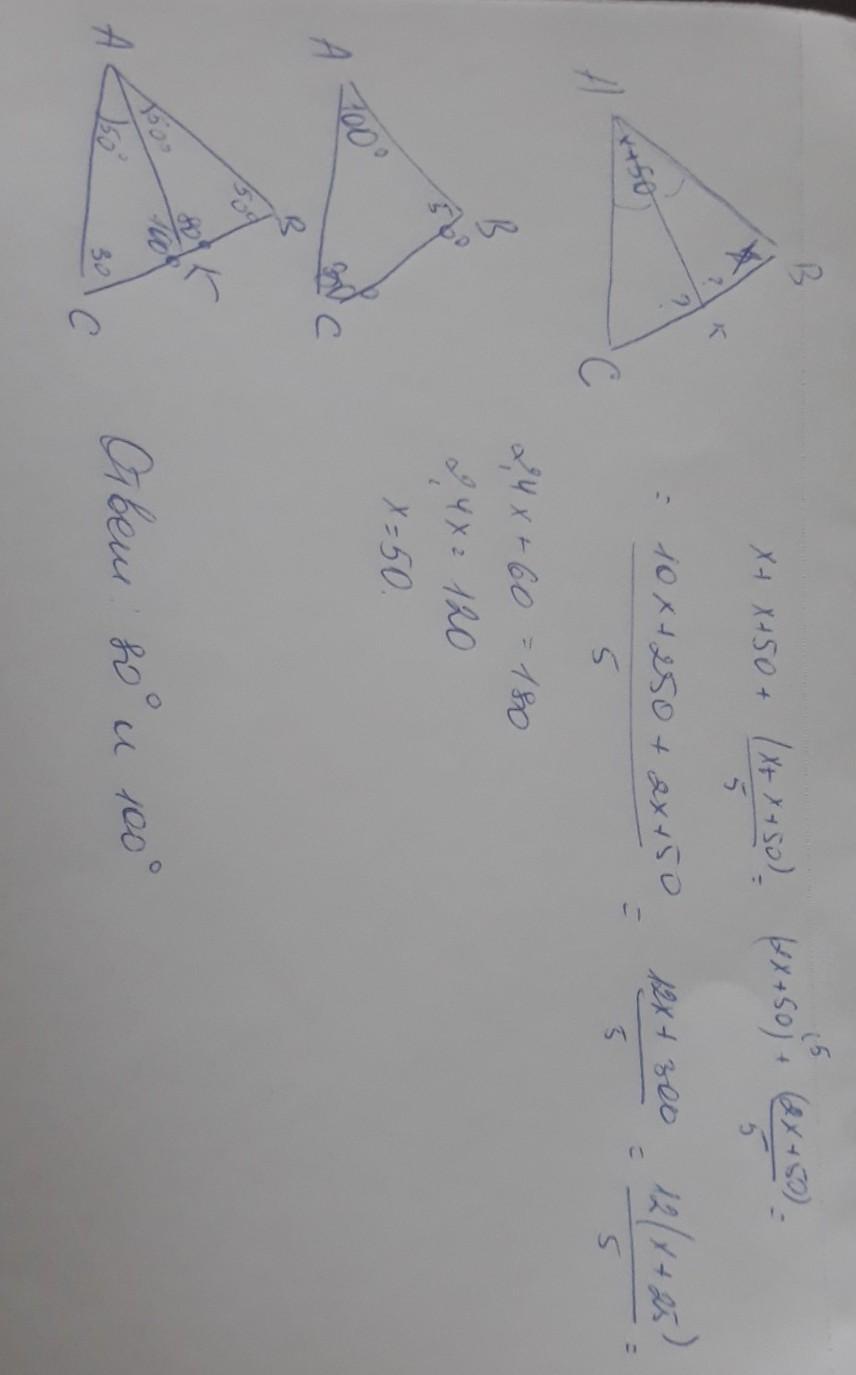 A
B
C
K
x+50
x
?
?
x + x+50 + (x+x+50)/5 = (2x+50)^(5 + (2x+50)/5 =
= (10x+250+2x+50)/5 = (12x+300)/5 = 12(x+25)/5 =
2,4x+60 = 180
2,4x = 120
x = 50.
A
B
C
100°
50°
30°
A
B
C
K
50°
50°
50°
80°
100°
30
Ответ: 80° и 100°